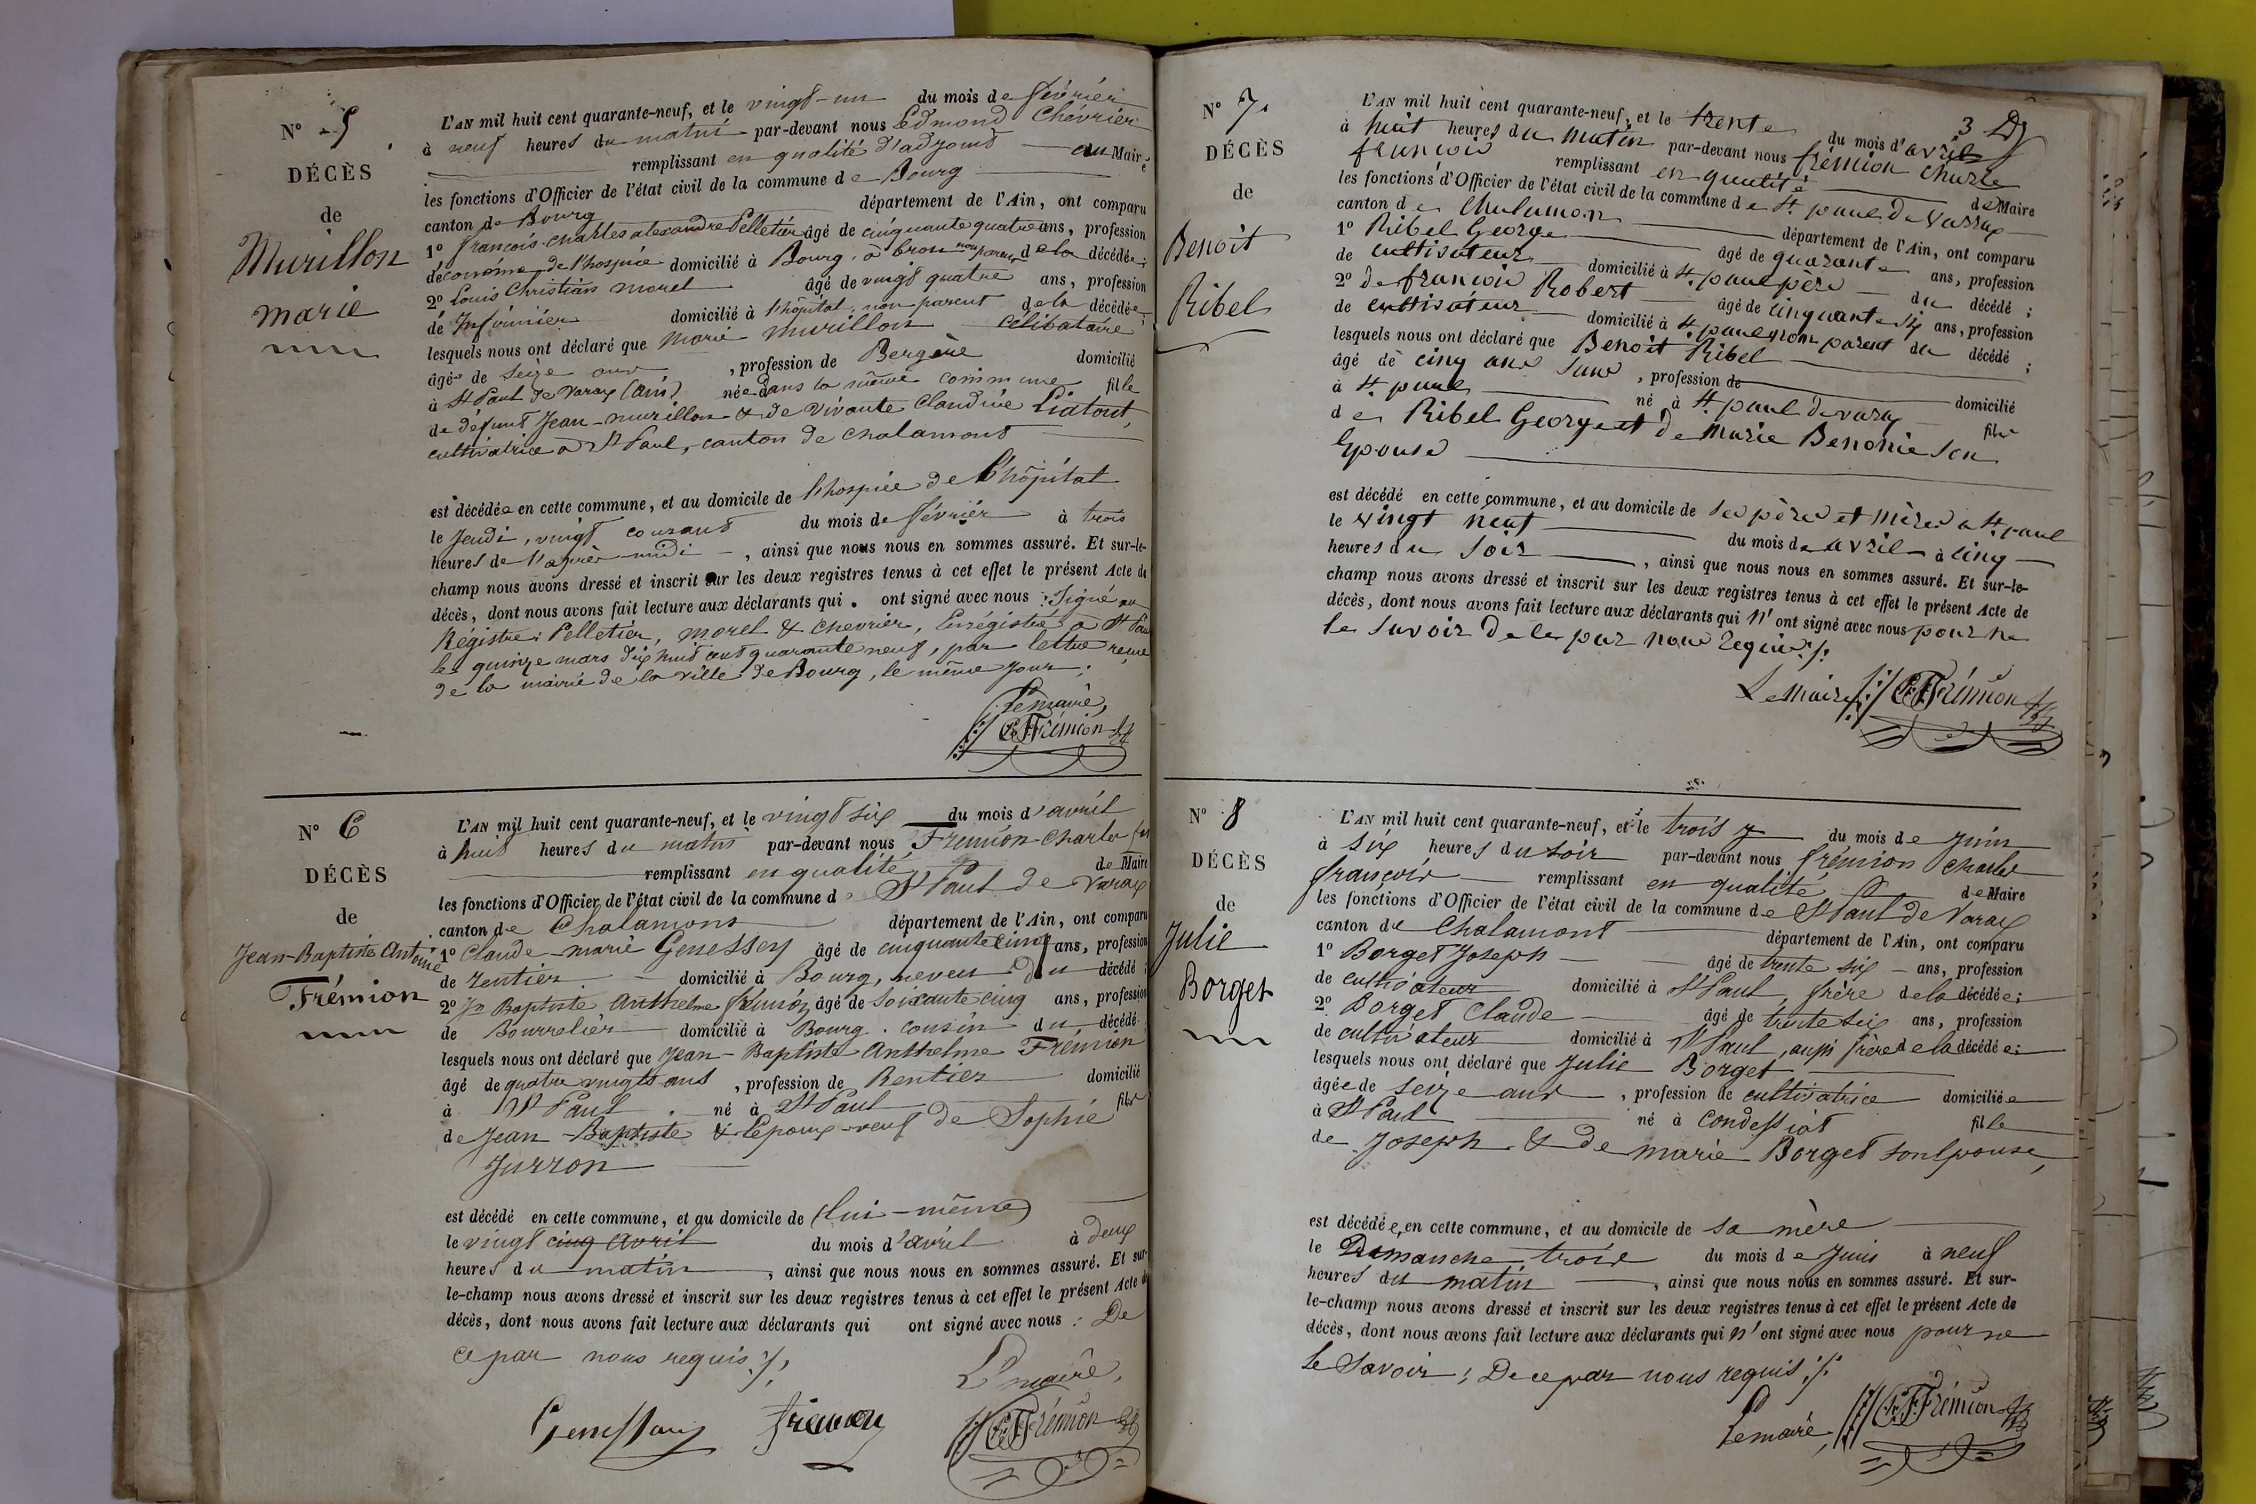 N° 5
DÉCÈS
de
Murillon
marie
L'AN mil huit cent quarante-neuf, et le vingt-un du mois de février
à neuf heures du matin par-devant nous Edmond Chevrier
remplissant en qualité d'adjoint au Maire
les fonctions d'Officier de l'état civil de la commune de Bourg
canton de Bourg département de l'Ain, ont comparu
1° françois-charles alexandre Pelletier âgé de cinquante quatre ans, profession
d'économe de l'hospice domicilié à Bourg, à bron non parent de la décédée;
2° Louis Christian morel âgé de vingt quatre ans, profession
de Infirmier domicilié à l'hôpital, non parent de la décédée;
lesquels nous ont déclaré que Marie Murillon célibataire
âgée de seize ans , profession de Bergère domicilié
à St Paul de Varax (Ain) née dans la même commune fille
de défunt Jean-murillon & de vivante Claudine Liatout,
cultivatrice à St Paul, canton de chalamont
est décédée en cette commune, et au domicile de l'hospice de l'hôpital
le Jeudi, vingt courant du mois de février à trois
heures de l'après-midi , ainsi que nous nous en sommes assuré. Et sur-le-
champ nous avons dressé et inscrit sur les deux registres tenus à cet effet le présent Acte de
décès, dont nous avons fait lecture aux déclarants qui ont signé avec nous : Signé au
Régistre: Pelletier, morel & chevrier, Enrégistré à St Paul
le quinze mars dix huit cent quarante neuf, par lettre reçue
de la mairie de la ville de Bourg, le même jour;
Lemaire,
C.F. Frémion
N° 6
DÉCÈS
de
Jean-Baptiste Antoine
Frémion
L'AN mil huit cent quarante-neuf, et le vingt six du mois d'avril
à huit heures du matin par-devant nous Frémion-Charles
remplissant en qualité de Maire
les fonctions d'Officier de l'état civil de la commune d St Paul de Varax
canton de Chalamont département de l'Ain, ont comparu
1° Claude-marie Genessey âgé de cinquante cinq ans, profession
de rentier domicilié à Bourg, neveu du décédé;
2° Jn Baptiste Anthelme frémion âgé de soixante cinq ans, profession
de Bourrelier domicilié à Bourg. cousin du décédé
lesquels nous ont déclaré que Jean-Baptiste Anthelme Frémion
âgé de quatre vingts ans , profession de Rentier domicilié
à St Paul né à St Paul fils
de Jean-Baptiste & l'époux-veuf de Sophie
Jurron
est décédé en cette commune, et au domicile de (lui-même)
le vingt cinq avril du mois d'avril à deux
heures du matin , ainsi que nous nous en sommes assuré. Et sur-
le-champ nous avons dressé et inscrit sur les deux registres tenus à cet effet le présent Acte de
décès, dont nous avons fait lecture aux déclarants qui ont signé avec nous : De
ce par nous requis ./.
Lemaire,
frémion C.F. Frémion
3
N° 7.
DÉCÈS
de
Benoit
Ribel
L'AN mil huit cent quarante-neuf, et le trente du mois d'avril
à huit heures du matin par-devant nous frémion charle
françois remplissant en qualité de Maire
les fonctions d'Officier de l'état civil de la commune de St paul de varax
canton de chalamon département de l'Ain, ont comparu
1° Ribel George âgé de quarante ans, profession
de cultivateur domicilié à St paul père du décédé;
2° de françois Robert âgé de cinquante six ans, profession
de cultivateur domicilié à St paul non parent du décédé;
lesquels nous ont déclaré que Benoit Ribel
âgé de cinq ans sans , profession de domicilié
à St paul né à St paul de varax fils
de Ribel George et de marie Benonie son
Epouse
est décédé en cette commune, et au domicile de ses père et mère a St paul
le vingt neuf du mois de avril à cinq
heures du soir , ainsi que nous nous en sommes assuré. Et sur-le-
champ nous avons dressé et inscrit sur les deux registres tenus à cet effet le présent Acte de
décès, dont nous avons fait lecture aux déclarants qui n'ont signé avec nous pour ne
le savoir de ce par nous requis ./.
Le Maire C.F. Frémion
N° 8
DÉCÈS
de
Julie
Borget
L'AN mil huit cent quarante-neuf, et le trois du mois de Juin
à six heures du soir par-devant nous frémion charles
françois remplissant en qualité de Maire
les fonctions d'Officier de l'état civil de la commune de St Paul de Varax
canton de Chalamont département de l'Ain, ont comparu
1° Borget Joseph âgé de trente six ans, profession
de cultivateur domicilié à St Paul, frère de la décédée;
2° Borget Claude âgé de trente six ans, profession
de cultivateur domicilié à St Paul, aussi frère de la décédée;
lesquels nous ont déclaré que Julie Borget
âgée de seize ans , profession de cultivatrice domiciliée
à St Paul né à Condessiat fille
de Joseph & de marie Borget son épouse,
est décédée, en cette commune, et au domicile de sa mère
le Dimanche trois du mois de Juin à neuf
heures du matin , ainsi que nous nous en sommes assuré. Et sur-
le-champ nous avons dressé et inscrit sur les deux registres tenus à cet effet le présent Acte de
décès, dont nous avons fait lecture aux déclarants qui n'ont signé avec nous pour ne
le savoir; De ce par nous requis ./.
Lemaire, C.F. Frémion